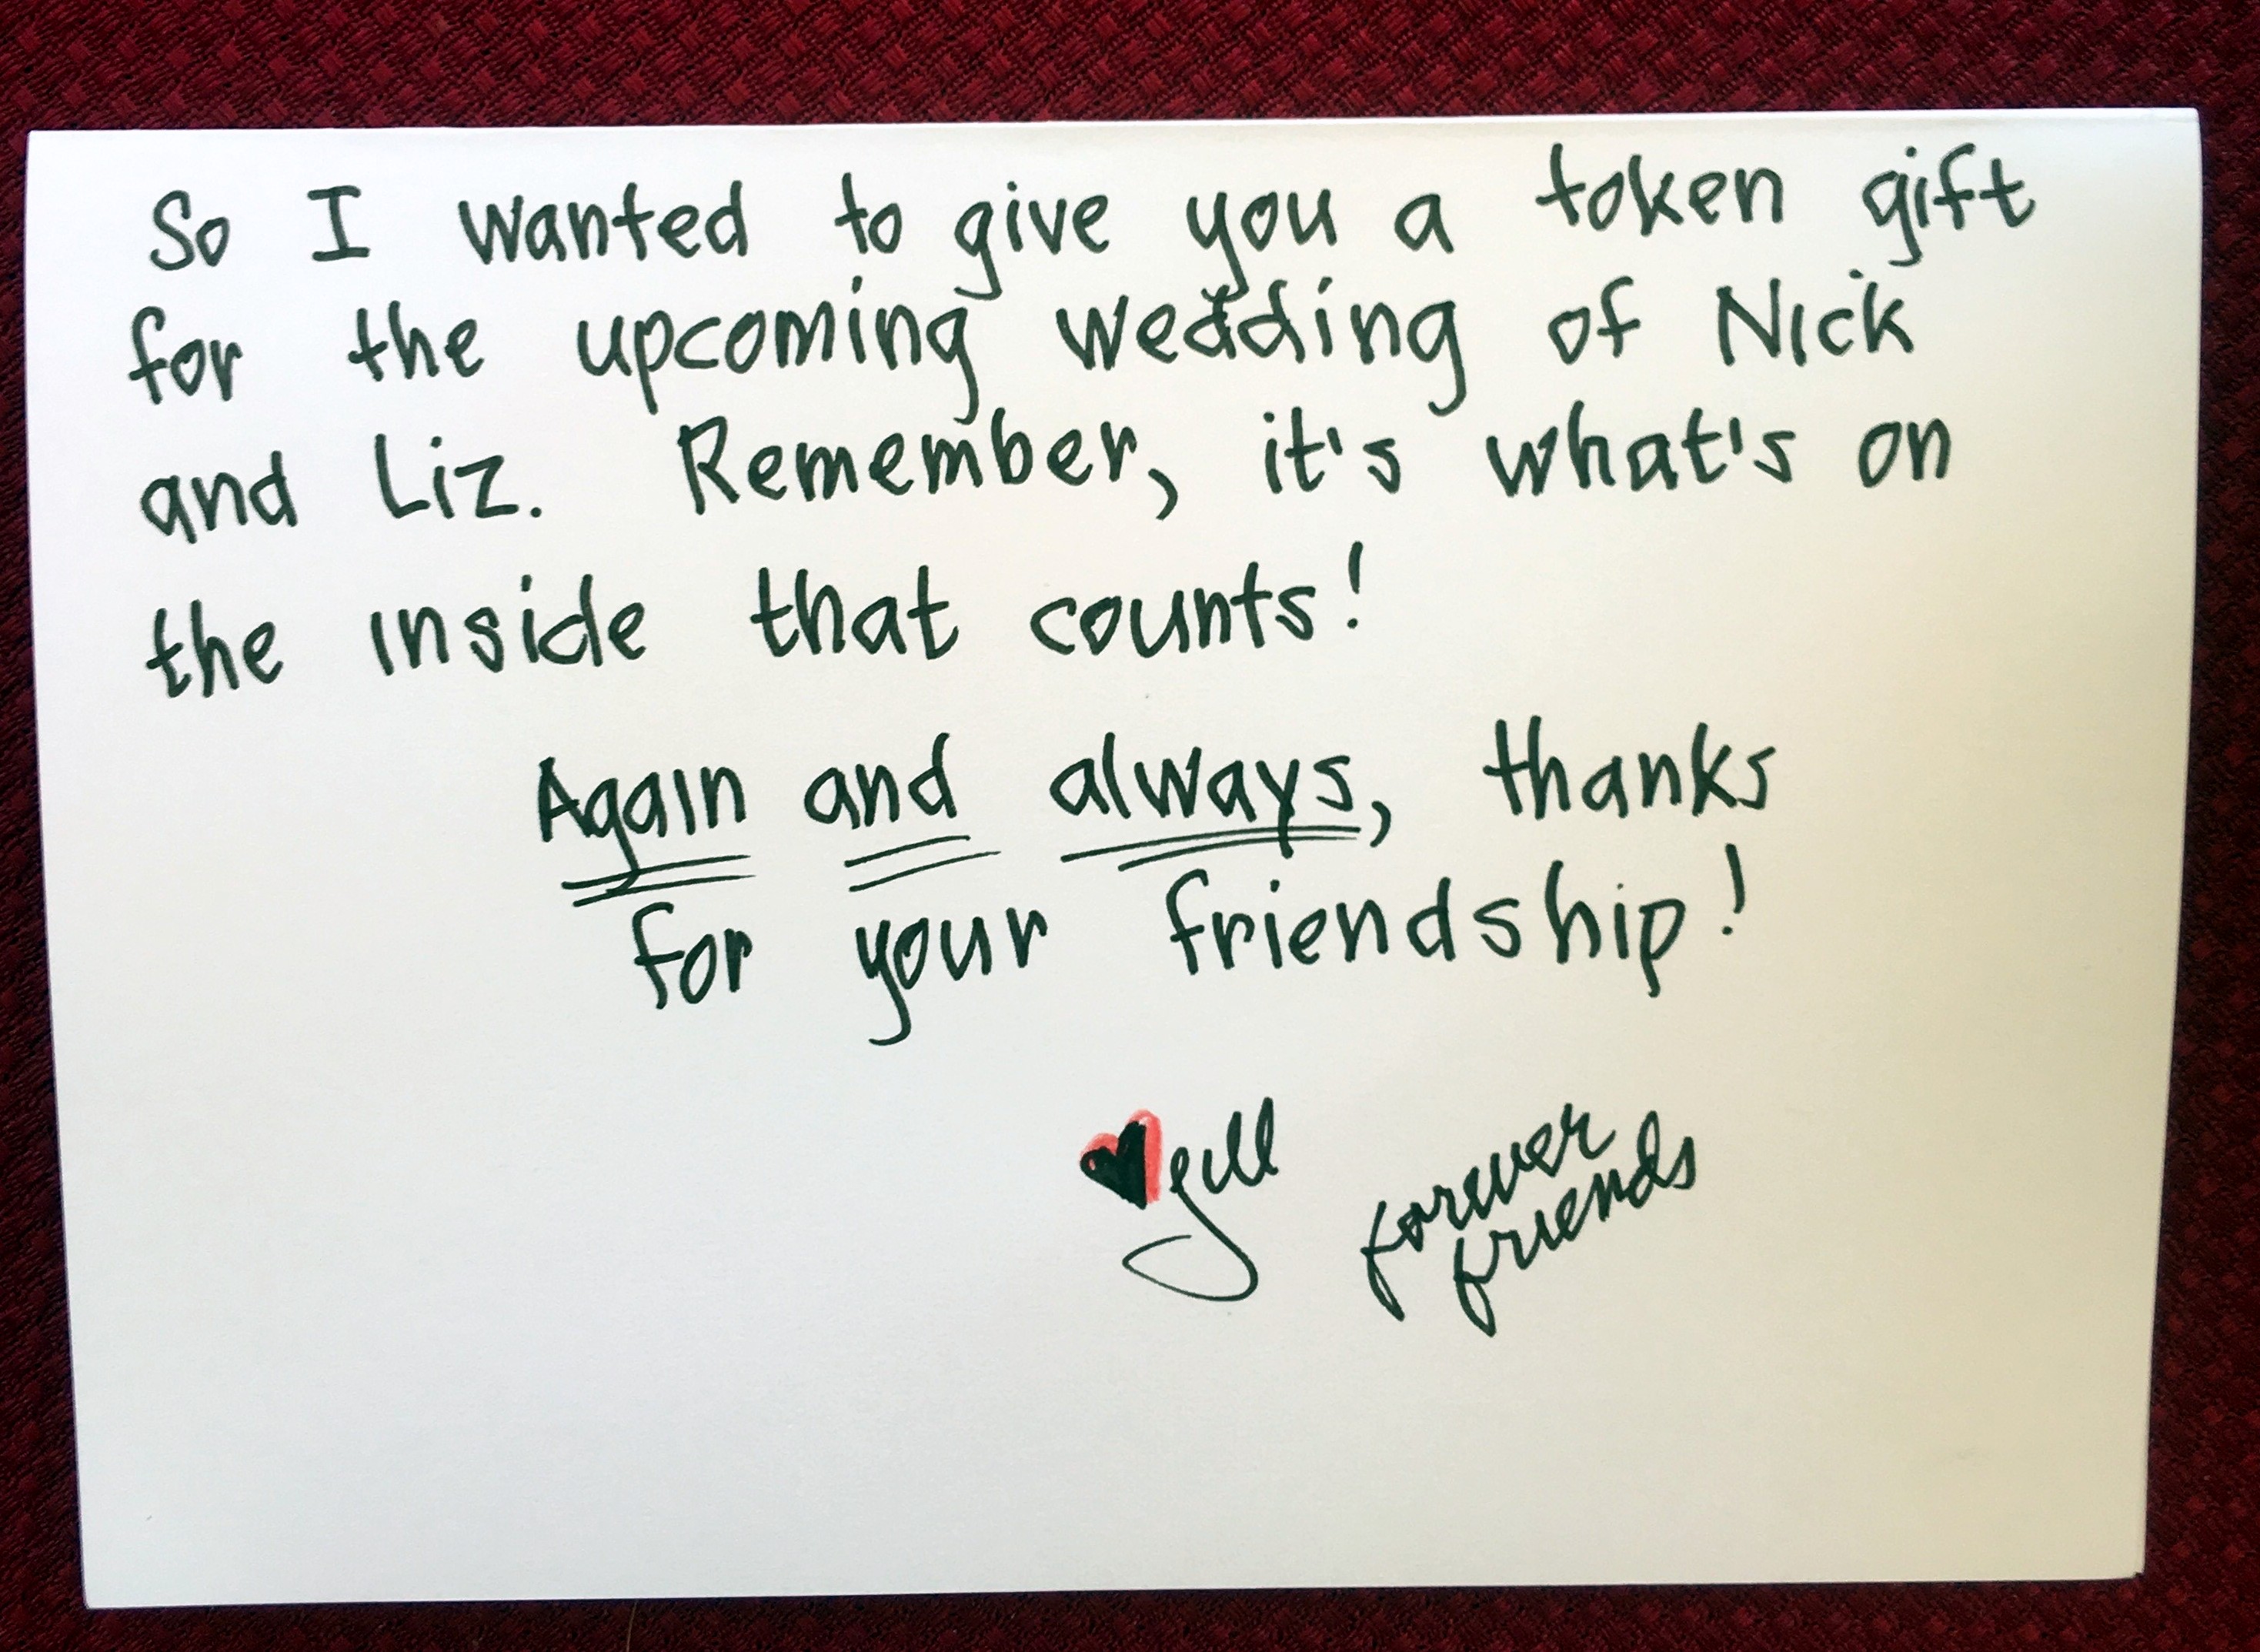 So I wanted to give you a token gift
for the upcoming wedding of Nick
and Liz. Remember, it's what's on
the inside that counts!
Again and always, thanks
for your friendship!
forever
friends